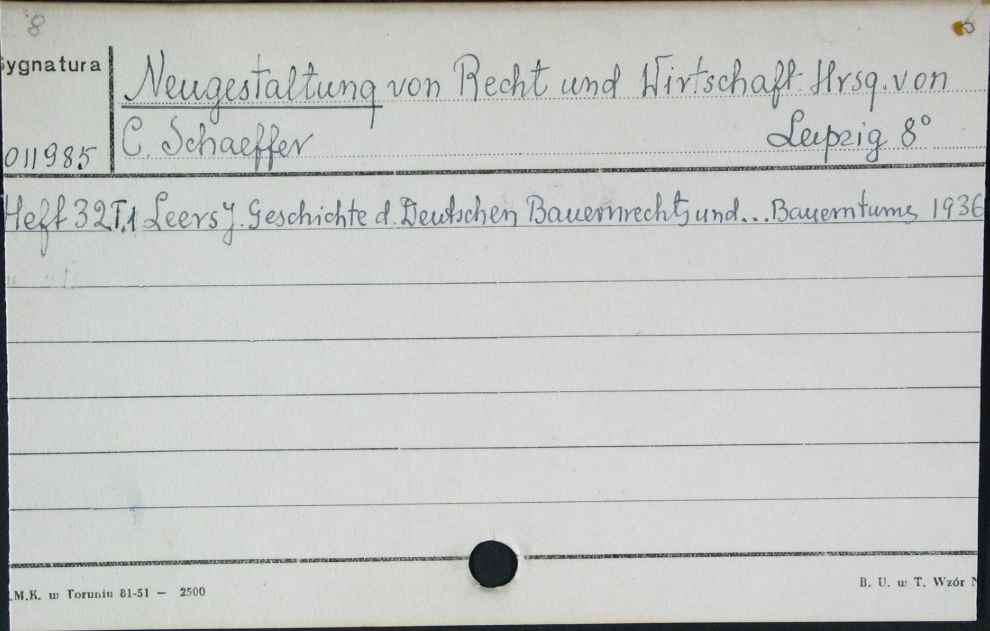 8
ygnatura
Neugestaltung von Recht und Wirtschaft. Hrsg. von
C. Schaeffer Leipzig 8°
011985
Heft 32 T.1 Leers J. Geschichte d. Deutschen Bauernrechts und... Bauerntums 1936
.M.K. w Toruniu 81-51 — 2500
B. U. w T. Wzór N